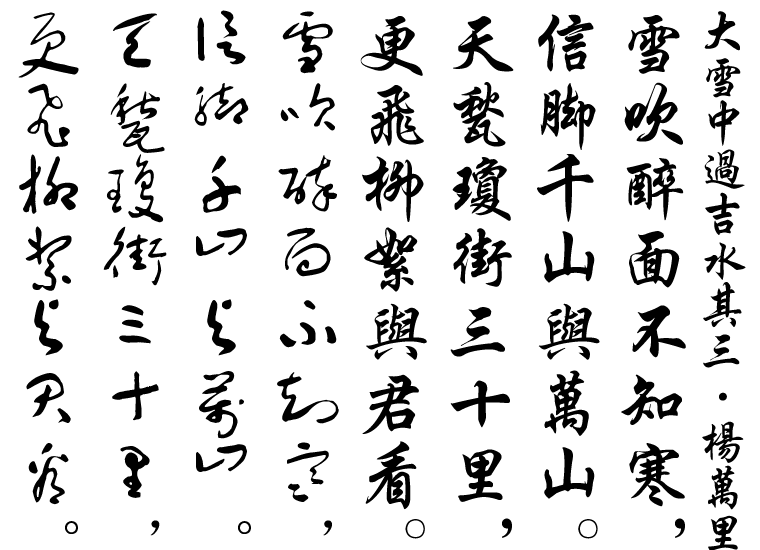 大雪中過吉水其三·楊萬里
雪吹醉面不知寒，
信脚千山與萬山。
天甃瓊街三十里，
更飛柳絮與君看。
雪吹醉面不知寒，
信脚千山與萬山。
天甃瓊街三十里，
更飛柳絮與君看。